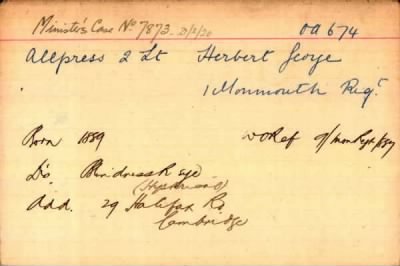 Minister's Case No 7873. 21/2/20
OA 674
Allpress 2 Lt Herbert George
1 Monmouth Regt
Born 1889
WO Ref 9/Mon Regt/
Dis. Blindness R eye
(Hysterical)
Add. 29 Halifax Rd
Cambridge